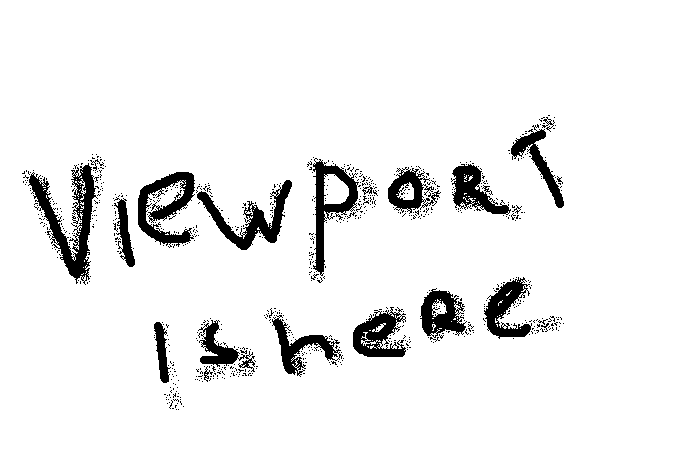 Viewport
is here